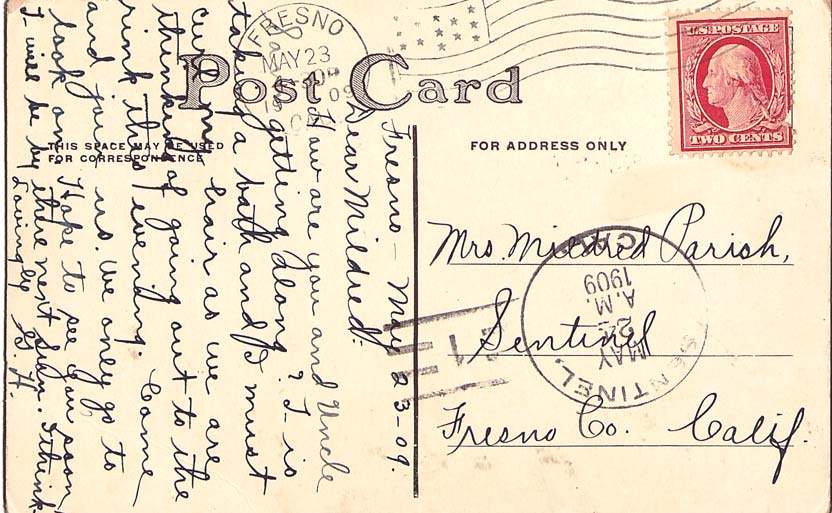 FRESNO
MAY 23
09
U.S. POSTAGE
TWO CENTS
Post Card
THIS SPACE MAY BE USED
FOR CORRESPONDENCE
FOR ADDRESS ONLY
Fresno - May 23-09.
Dear Mildred:
How are you and Uncle
getting along? I is
taking a bath and I must
curl my hair as we are
thinking of going out to the
rink this evening. Come
and join us. We only go to
look on. Hope to see you soon
I will be by there next Sun. I think.
Lovingly G. H.
Mrs. Mildred Parish,
Sentinel
Fresno Co. Calif.
SENTINEL, CAL.
MAY
24
A.M.
1909
1